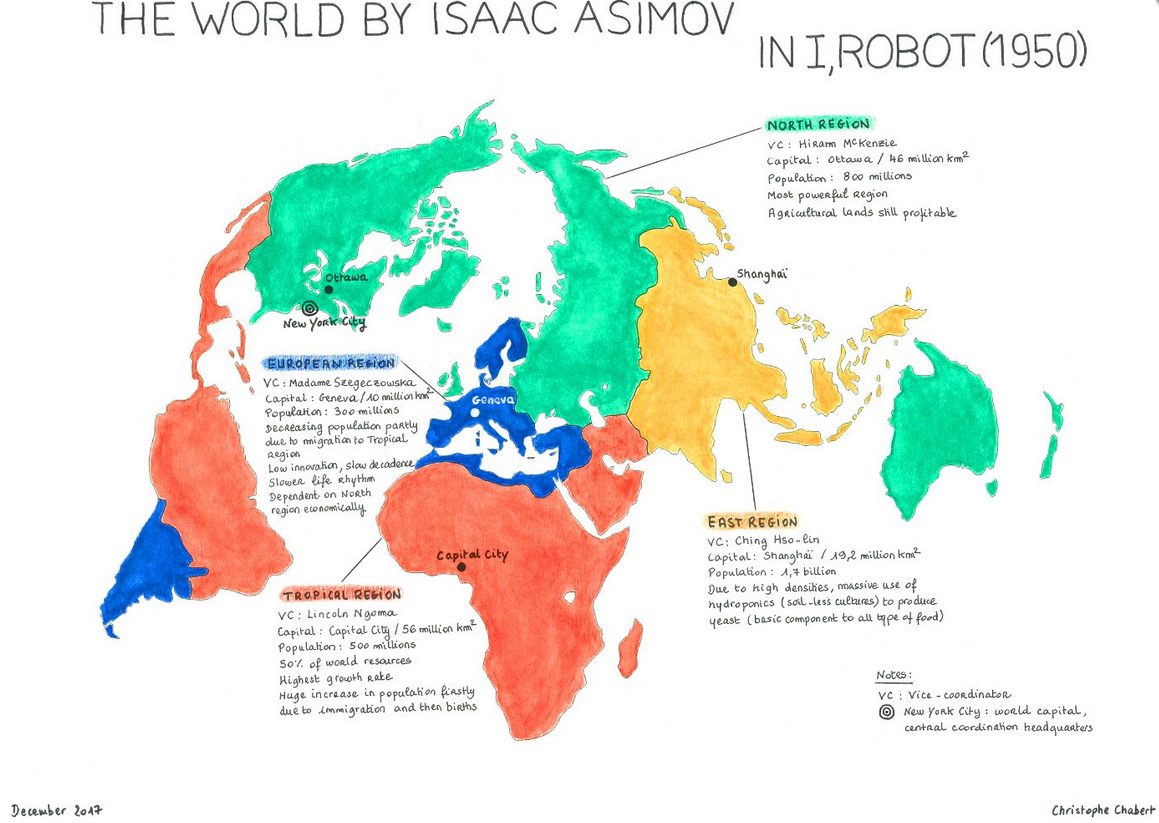 THE WORLD BY ISAAC ASIMOV
IN I, ROBOT (1950)
NORTH REGION
VC : Hiram McKenzie
Capital : Ottawa / 46 million km²
Population : 800 millions
Most powerful region
Agricultural lands still profitable
Shanghaï
Ottawa
New York City
EUROPEAN REGION
VC : Madame Szegeczowska
Capital : Geneva / 10 million km²
Population : 300 millions
Decreasing population partly
due to migration to Tropical
region
Low innovation, slow decadence
Slower life rhythm
Dependent on North
region economically
Geneva
EAST REGION
VC : Ching Hso-lin
Capital : Shanghaï / 19,2 million km²
Population : 1,7 billion
Due to high densities, massive use of
hydroponics (soil-less cultures) to produce
yeast (basic component to all type of food)
Capital City
TROPICAL REGION
VC : Lincoln Ngoma
Capital : Capital City / 56 million km²
Population : 500 millions
50% of world resources
Highest growth rate
Huge increase in population firstly
due to immigration and then births
Notes :
VC : Vice-coordinator
New York City : world capital,
central coordination headquarters
December 2017
Christophe Chabert